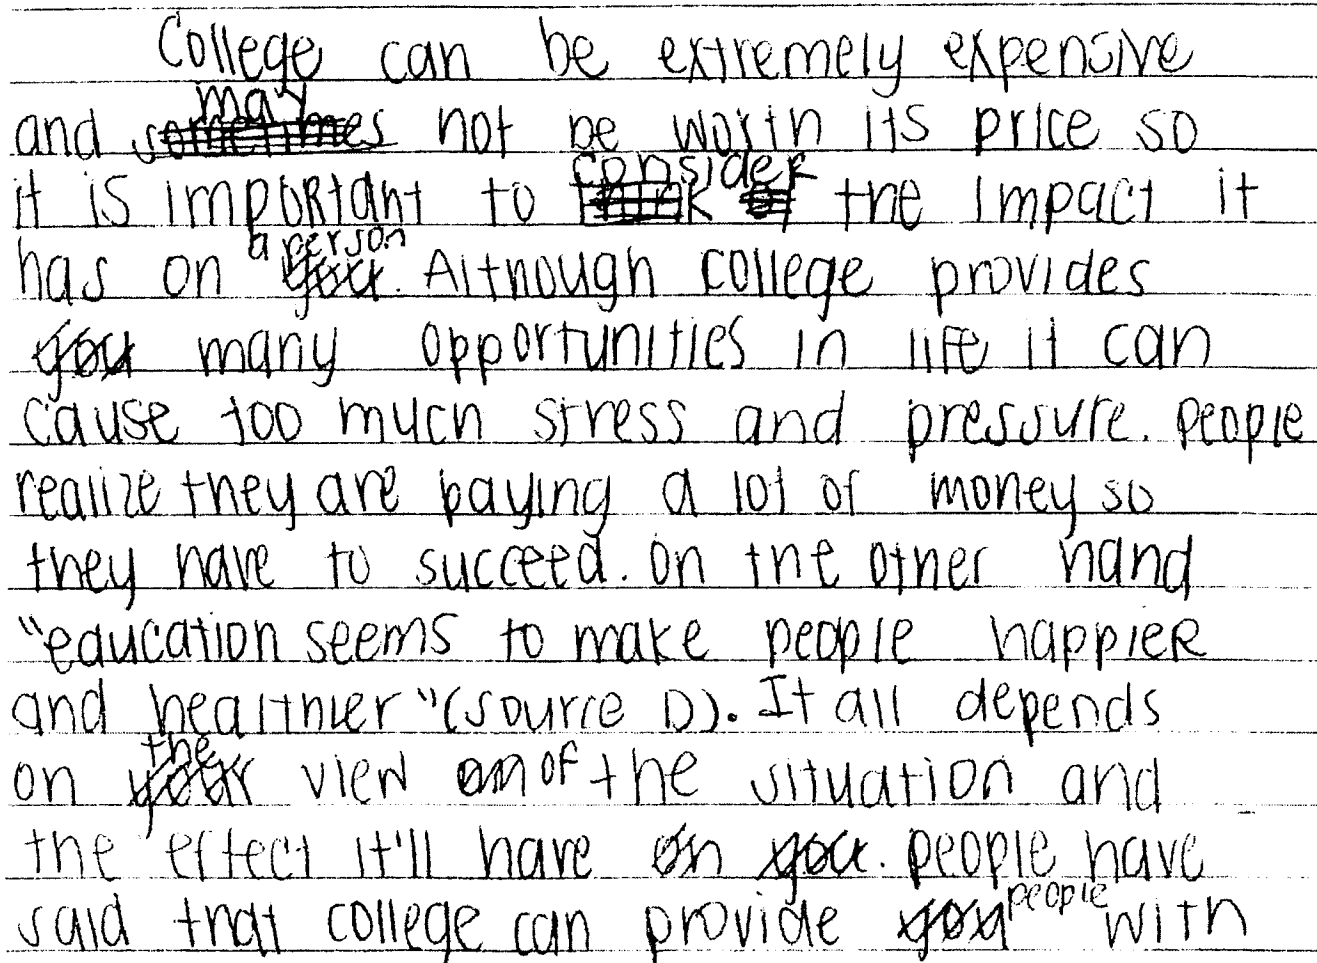 College can be extremely expensive
and may not be worth its price so
it is important to consider the impact it
has on a person. Although college provides
many opportunities in life it can
cause too much stress and pressure. people
realize they are paying a lot of money so
they have to succeed. on the other hand
"education seems to make people happier
and healthier" (source D). It all depends
on the view of the situation and
the effect it'll have. people have
said that college can provide people with